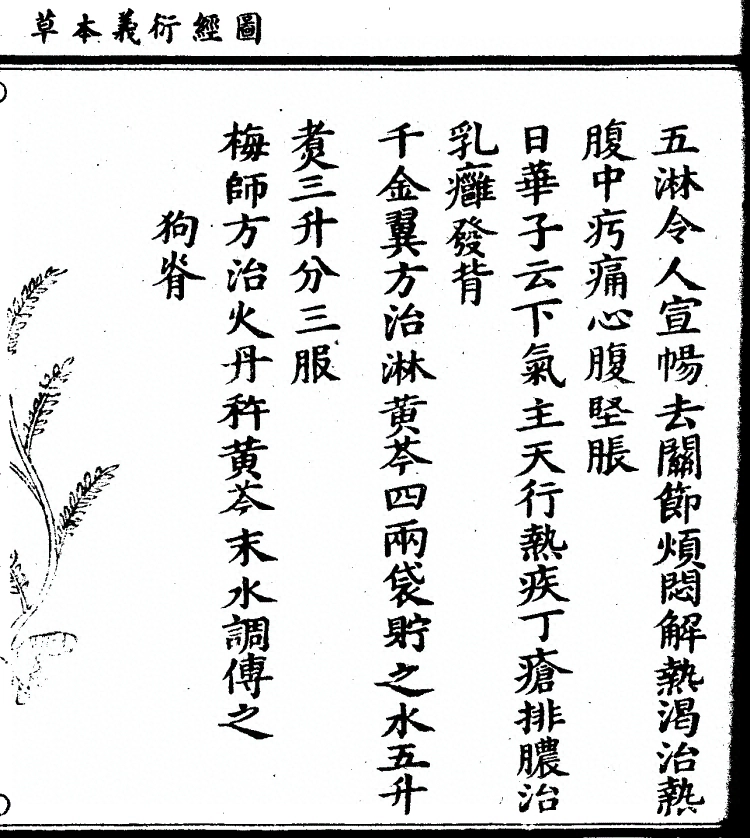 圖經衍義本草
五淋令人宣暢去關節煩悶解熱渴治熱
腹中㽲痛心腹堅脹
日華子云下氣主天行熱疾丁瘡排膿治
乳癰發背
千金翼方治淋黃芩四兩袋貯之水五升
煑三升分三服
梅師方治火丹杵黃芩末水調傅之
狗脊